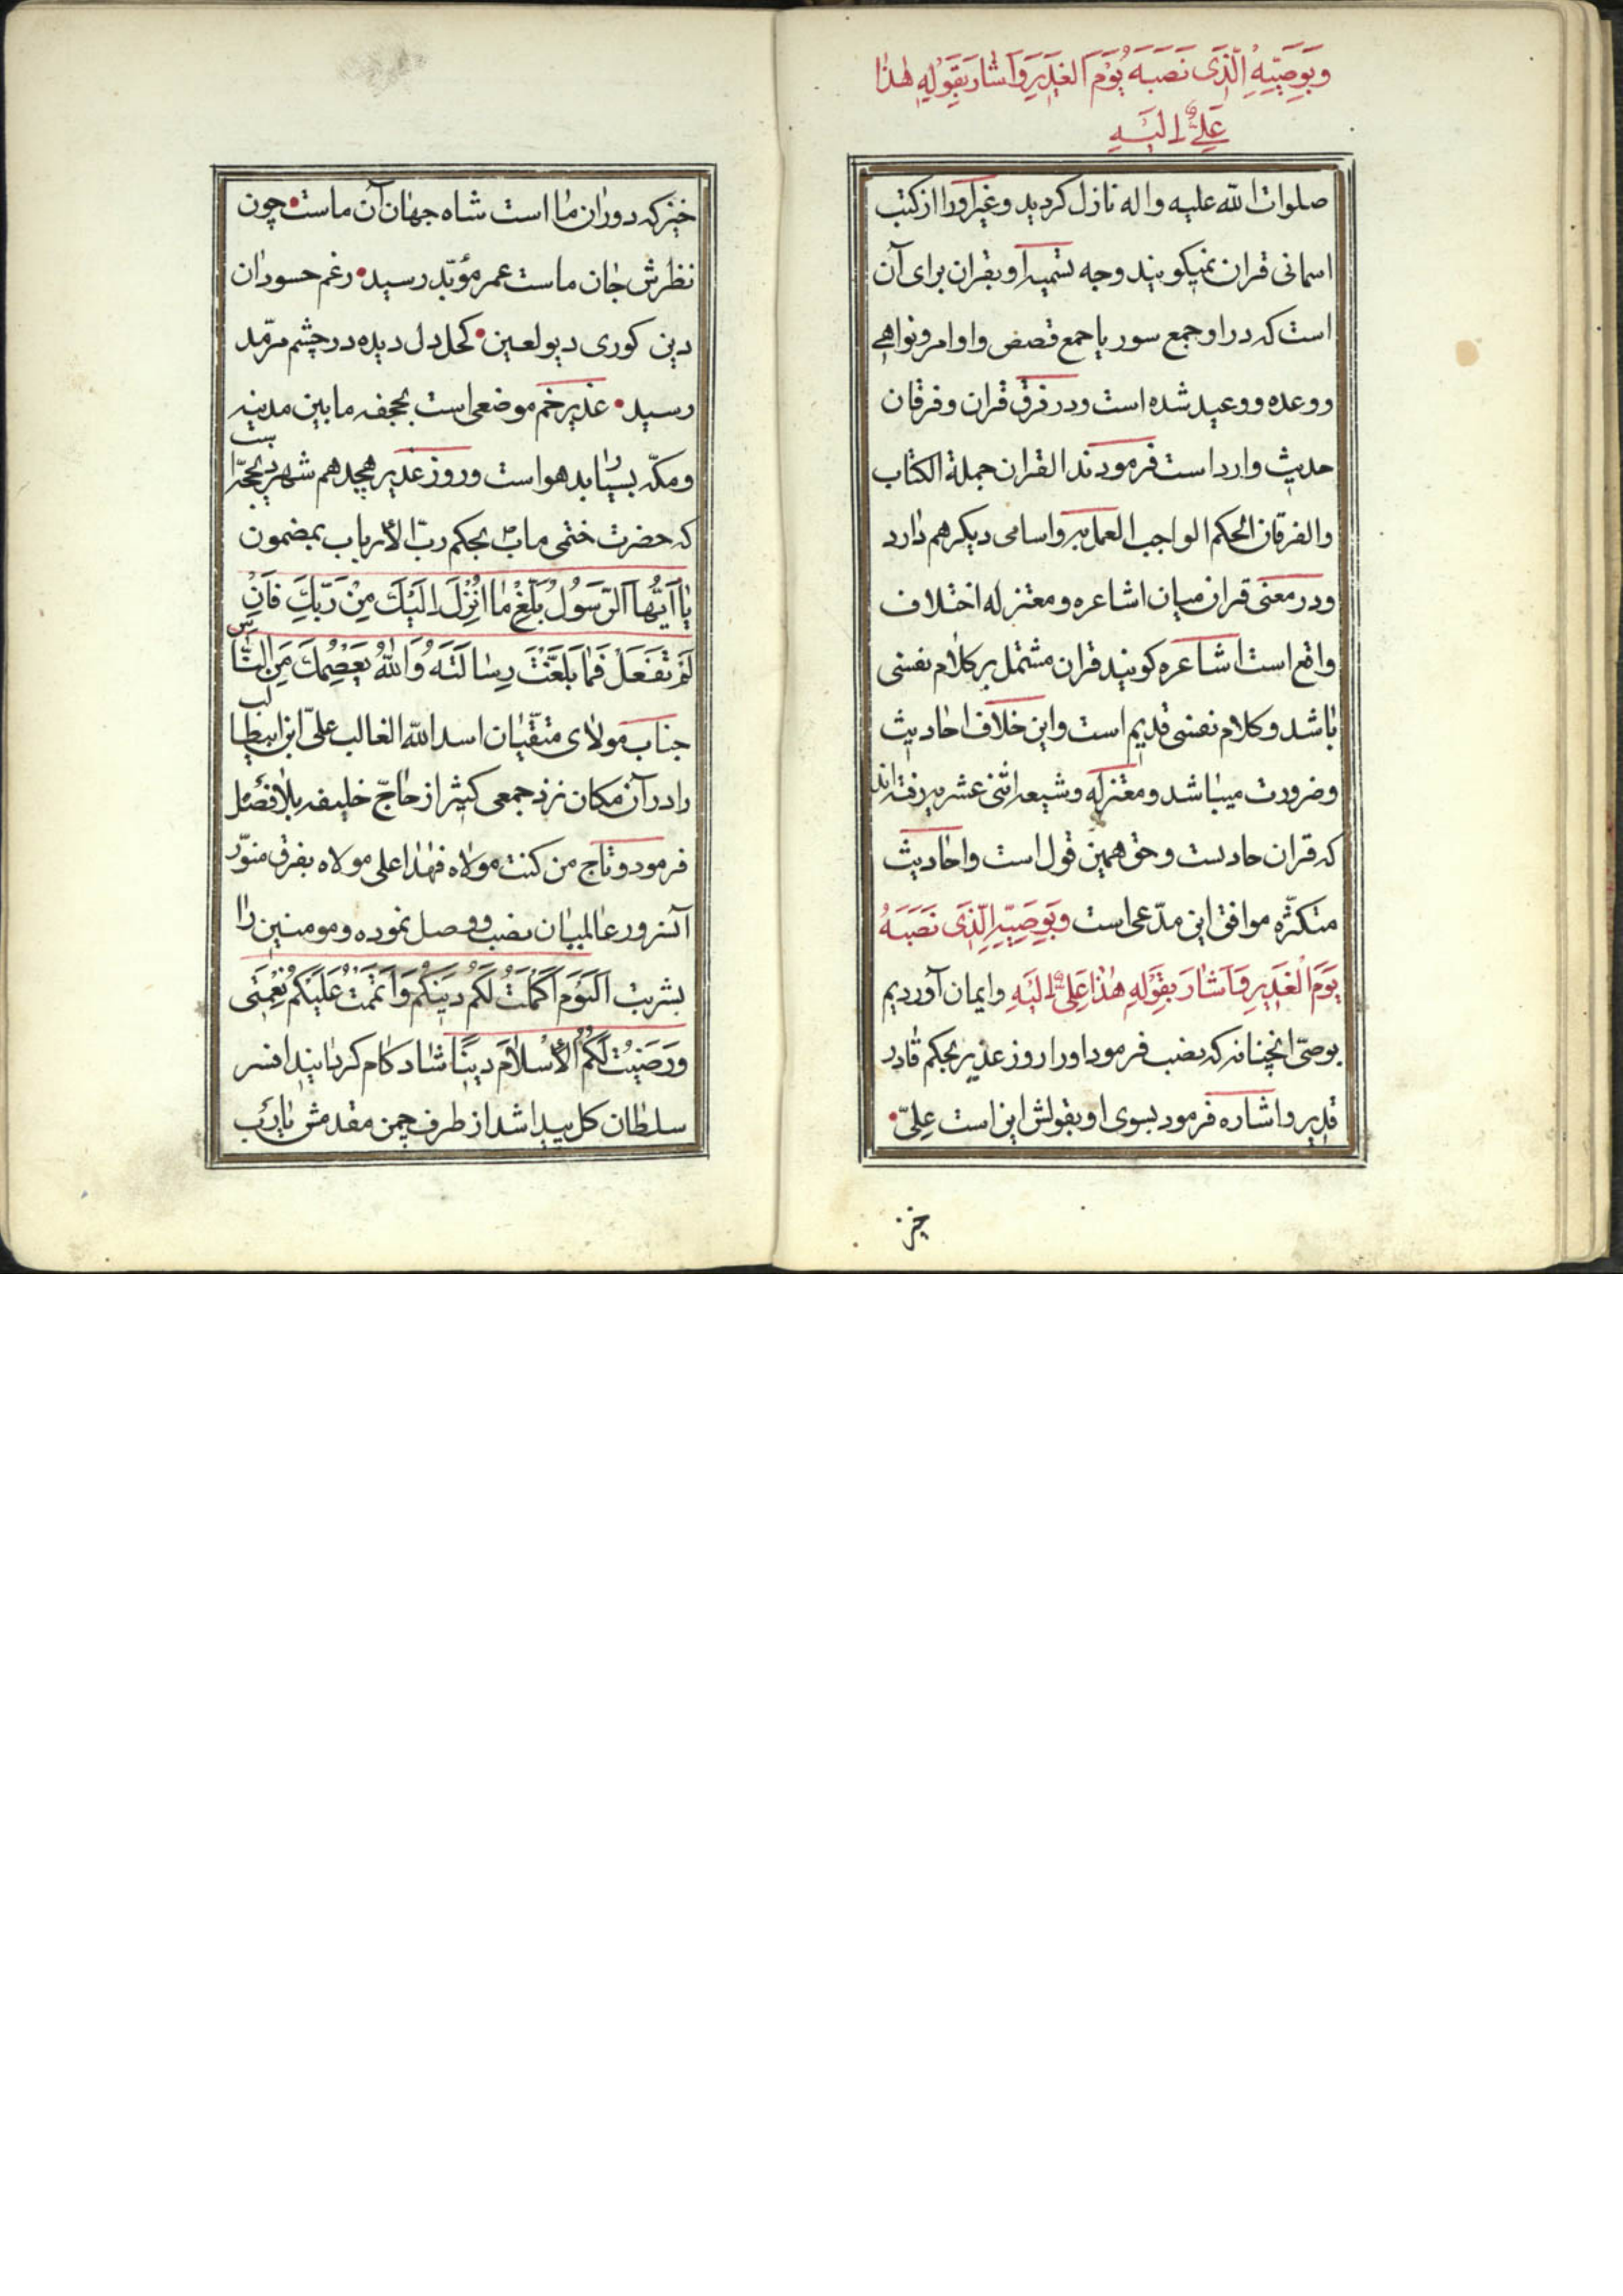 وَبِوَصِيِّهِ الَّذَى نَصَبَهُ يَوْمَ الغَدِيرِ وَاَشَارَ بِقَوْلِهِ هٰذا
عَلِىٌّ اِلَيْهِ
صلوات الله عليه واله نازل كرديد وغير اورا از كتب
اسمانی قران نميكويند وجه تسميه او بقران برای آن
است كه در او جمع سور يا جمع قصص واوامر ونواهی
ووعده ووعيد شده است ودر فرق قران وفرقان
حديث وارد است فرمودند القران جملة الكتاب
والفرقان المحكم الواجب العمل به واسامی ديكر هم دارد
ودر معنی قران ميان اشاعره ومعتزله اختلاف
واقع است اشاعره كويند قران مشتمل بر كلام نفسی
باشد وكلام نفسی قديم است واين خلاف احاديث
وضرورت ميباشد ومعتزله وشيعه اثنی عشريه رفته اند
كه قران حادست وحق همين قول است واحاديث
متكثّره موافق اين مدّعی است وَبِوَصِيِّهِ الَّذَى نَصَبَهُ
يَوْمَ الْغَدِيرِ وَاَشَارَ بِقَوْلِهِ هٰذا عَلِىٌّ اِلَيْهِ وايمان آورديم
بوصی انچنانه كه نصب فرمود اورا روز غدير بحكم قادر
قدير واشاره فرمود بسوی او بقولش اين است عِلیّ
خيز
خيز كه دوران ما است شاه جهان آن ماست چون
نظرش جان ماست عمر مؤبّد رسيد رغم حسودان
دين كوری ديو لعين كحل دل ديده در چشم مرمّد
رسيد غدير خم موضعی است بجحفه مابين مدينه
ومكّه بسيار بد هواست وروز غدير هجدهم شهر ذيحجّه است
كه حضرت ختمی ماب بحكم ربّ الأرباب بمضمون
يٰا اَيُّهٰا الرَّسُولُ بَلِّغْ مٰا اُنْزِلَ اِلَيْكَ مِنْ رَبِّكَ فَاِنْ
لَمْ تَفْعَلْ فَمٰا بَلَّغْتَ رِسٰالَتَهُ وَاللهُ يَعْصِمُكَ مِنَ النّٰاسِ
جناب مولای متقّيان اسد الله الغالب علیّ ابن ابيطالب
را در آن مكان نزد جمعی كثير از حاجّ خليفه بلا فصل
فرمود وتاج من كنت مولاه فهٰذا علی مولاه بفرق منوّر
آنسرور عالميان نصب ووصل نموده ومومنين را
بشربت اَلْيَوْمَ اَكْمَلْتُ لَكُمْ دِينَكُمْ وَاَتْمَمْتُ عَلَيْكُمْ نِعْمَتِى
وَرَضِيتُ لَكُمُ الْاِسْلٰامَ دِينًا شاد كام كردانيد افسر
سلطان كل پيدا شد از طرف چمن مقدمش يارب